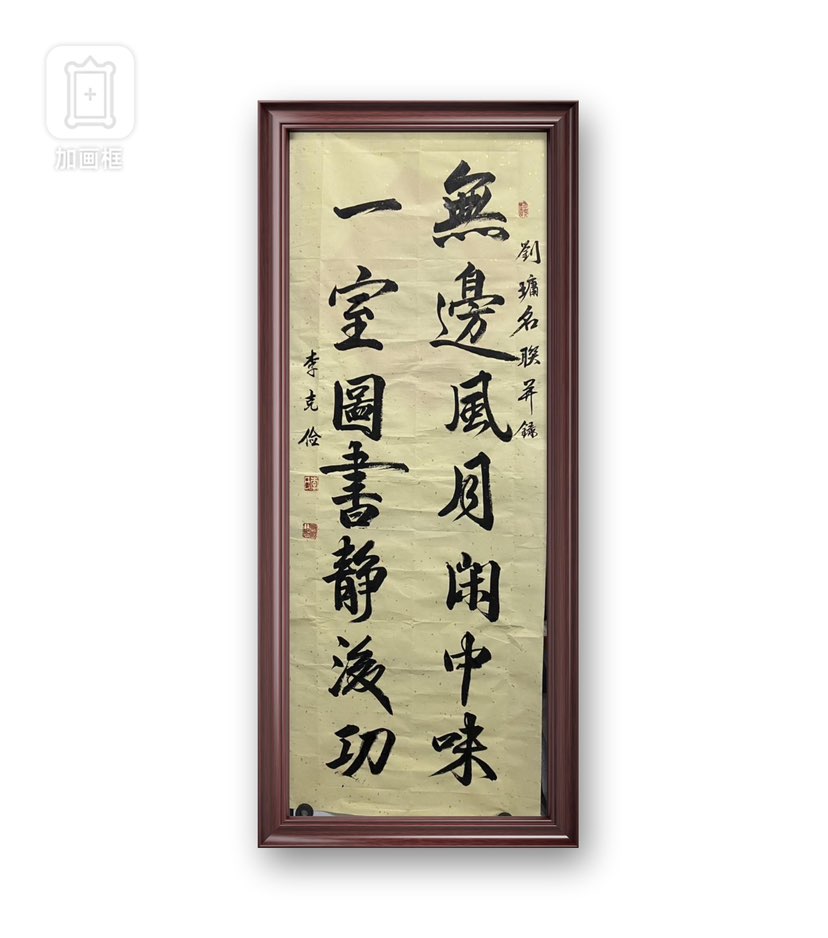 加画框
劉墉名联并錄
無邊風月閑中味
一室圖書静後功
李克俭